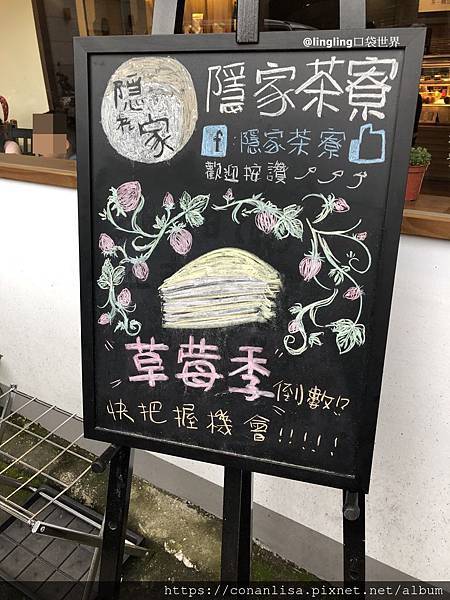 @lingling口袋世界
隱れ家
隱家茶寮
f:隱家茶寮
歡迎按讚
草莓季
倒數!?
快把握機會!!!!!
https://conanlisa.pixnet.net/album